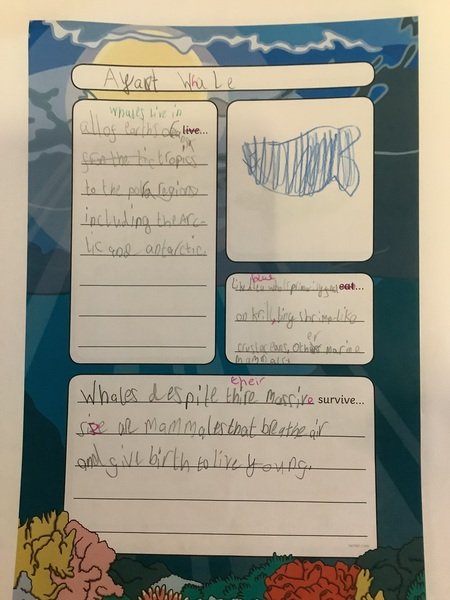 Whale
whales live in
all of earths live...
the tropics
to the polra regions
including the Arc-
tic and antarctic.
blue
eat...
on krill, tiny shrimp-like
crustaceans, other marine
er
mammals.
their
Whales despite thire massive survive...
size are mammales that breathe air
and give birth to live young.